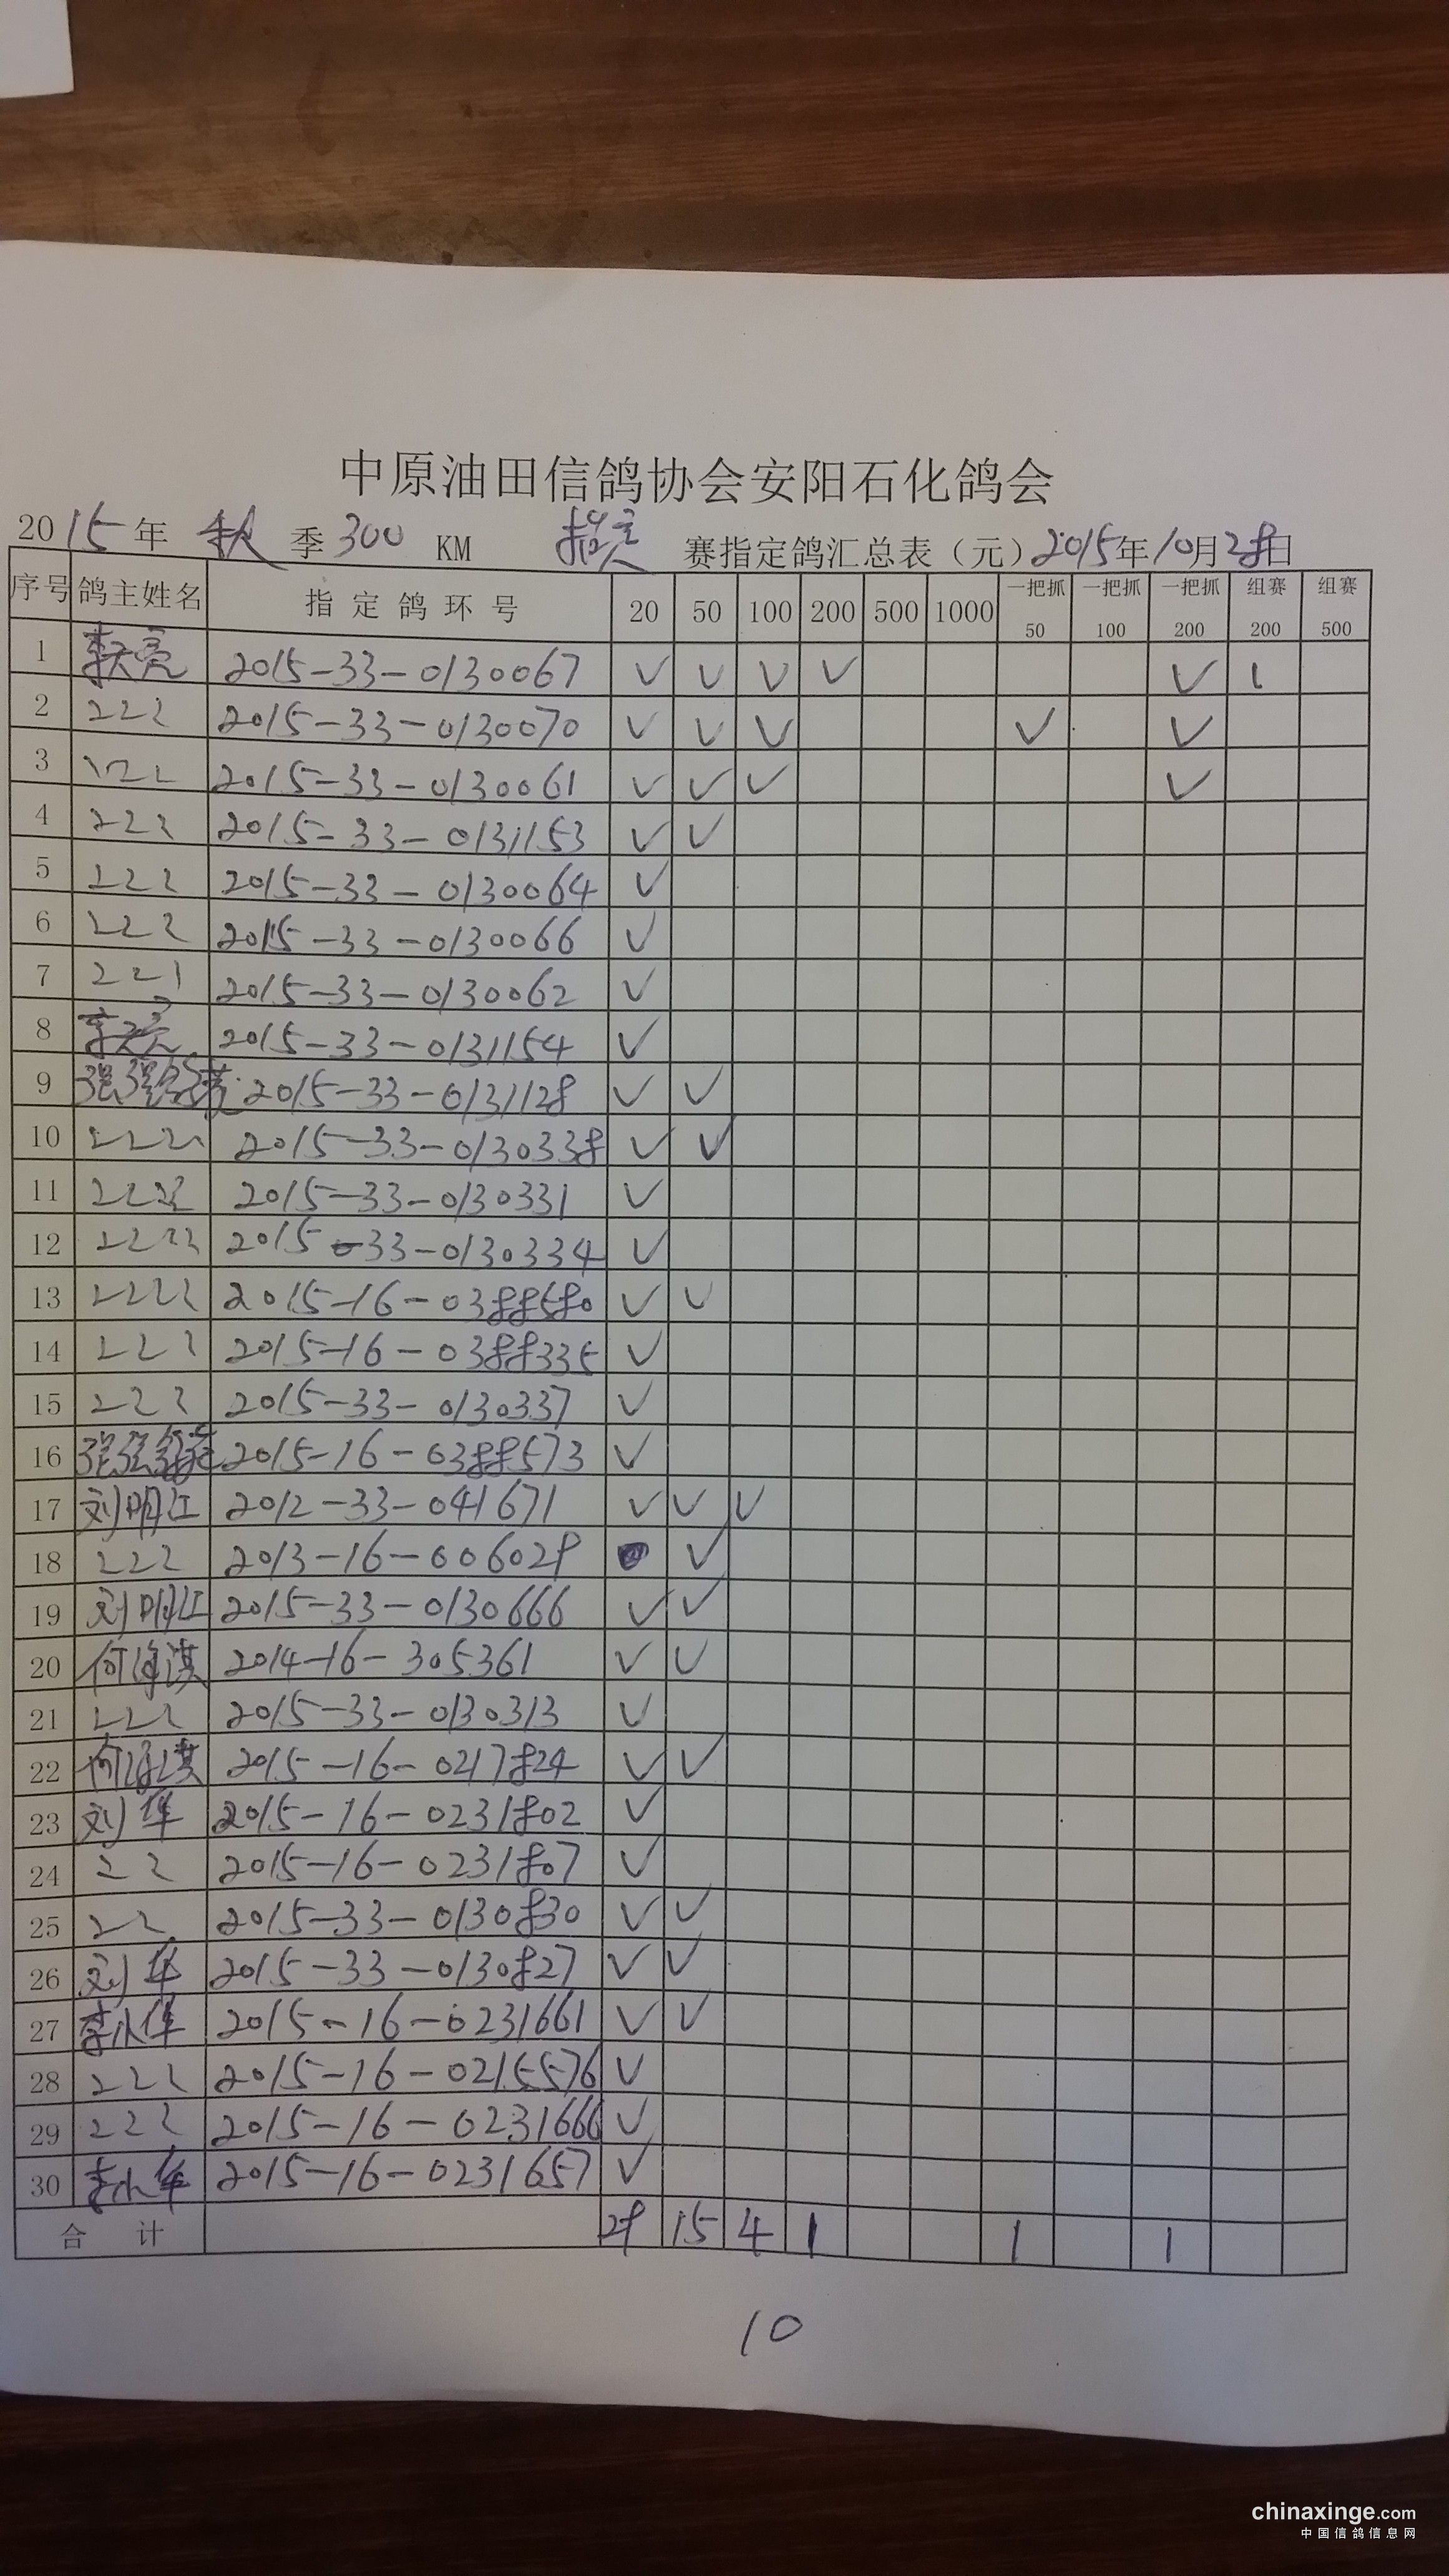 中原油田信鸽协会安阳石化鸽会
2015年 秋 季 300 KM 指定 赛指定鸽汇总表（元）2015年10月28日
序号 鸽主姓名 指定鸽环号 20 50 100 200 500 1000 一把抓50 一把抓100 一把抓200 组赛200 组赛500
1 李天亮 2015-33-0130067 ✓ ✓ ✓ ✓ ✓ 1
2 2015-33-0130070 ✓ ✓ ✓ ✓ ✓
3 2015-33-0130061 ✓ ✓ ✓ ✓
4 2015-33-0131153 ✓ ✓
5 2015-33-0130064 ✓
6 2015-33-0130066 ✓
7 2015-33-0130062 ✓
8 李天亮 2015-33-0131154 ✓
9 2015-33-0131128 ✓ ✓
10 2015-33-0130338 ✓ ✓
11 2015-33-0130331 ✓
12 2015-33-0130334 ✓
13 2015-16-0388580 ✓ ✓
14 2015-16-0388335 ✓
15 2015-33-0130337 ✓
16 2015-16-0388573 ✓
17 刘明江 2012-33-041671 ✓ ✓ ✓
18 2013-16-006029 ✓
19 刘明江 2015-33-0130666 ✓ ✓
20 何海淇 2014-16-305361 ✓ ✓
21 2015-33-0130313 ✓
22 何海淇 2015-16-0217824 ✓ ✓
23 刘军 2015-16-0231802 ✓
24 2015-16-0231807 ✓
25 2015-33-0130830 ✓ ✓
26 刘军 2015-33-0130827 ✓ ✓
27 李小军 2015-16-0231661 ✓ ✓
28 2015-16-0215576 ✓
29 2015-16-0231666 ✓
30 李小军 2015-16-0231657 ✓
合计 29 15 4 1 1 1
10
chinaxinge.com
中国信鸽信息网